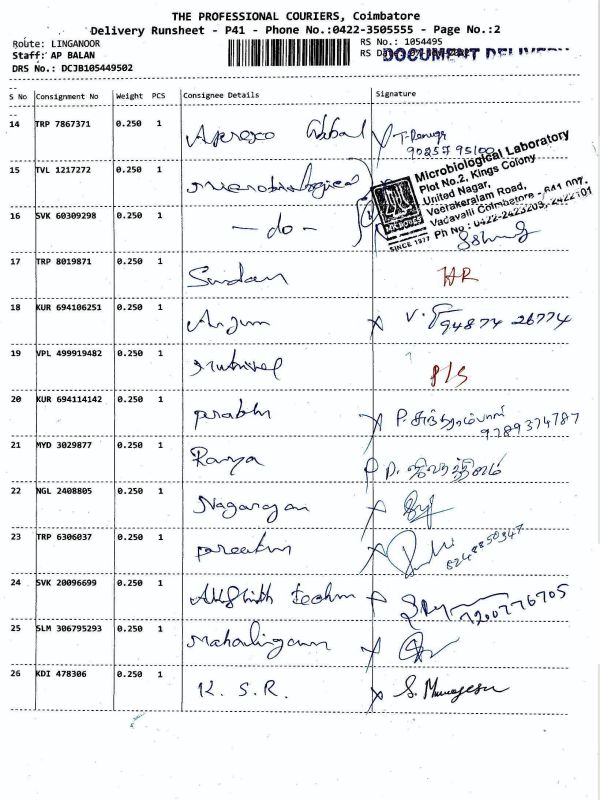 THE PROFESSIONAL COURIERS, Coimbatore
Delivery Runsheet - P41 - Phone No.:0422-3505555 - Page No.:2
Route: LINGANOOR
RS No.: 1054495
Staff: AP BALAN
RS
DOCUMENT DELIVERY
DRS No.: DCJB1054499502
S No Consignment No Weight PCS Consignee Details Signature
14 TRP 7867371 0.250 1
90257 95100
15 TVL 1217272 0.250 1 Microbiological
Microbiological Laboratory
Plot No.2, Kings Colony
United Nagar,
Veerakeralam Road,
Vadavalli Coimbatore - 641 007.
Ph No : 0422-2423203, 2422101
SINCE 1977
16 SVK 60309298 0.250 1 - do -
17 TRP 8019871 0.250 1 Sundari
18 KUR 694106251 0.250 1 Anjum V. 94874 26774
19 VPL 499919482 0.250 1 P/S
20 KUR 694114142 0.250 1 prabhu
9789374787
21 MYD 3029877 0.250 1 Ramya
22 NGL 2408805 0.250 1 Nagarajan
23 TRP 6306037 0.250 1
8248850347
24 SVK 20096699 0.250 1
7200776705
25 SLM 306795293 0.250 1 Mahalingam
26 KDI 478306 0.250 1 K. S. R. S. Murugesu